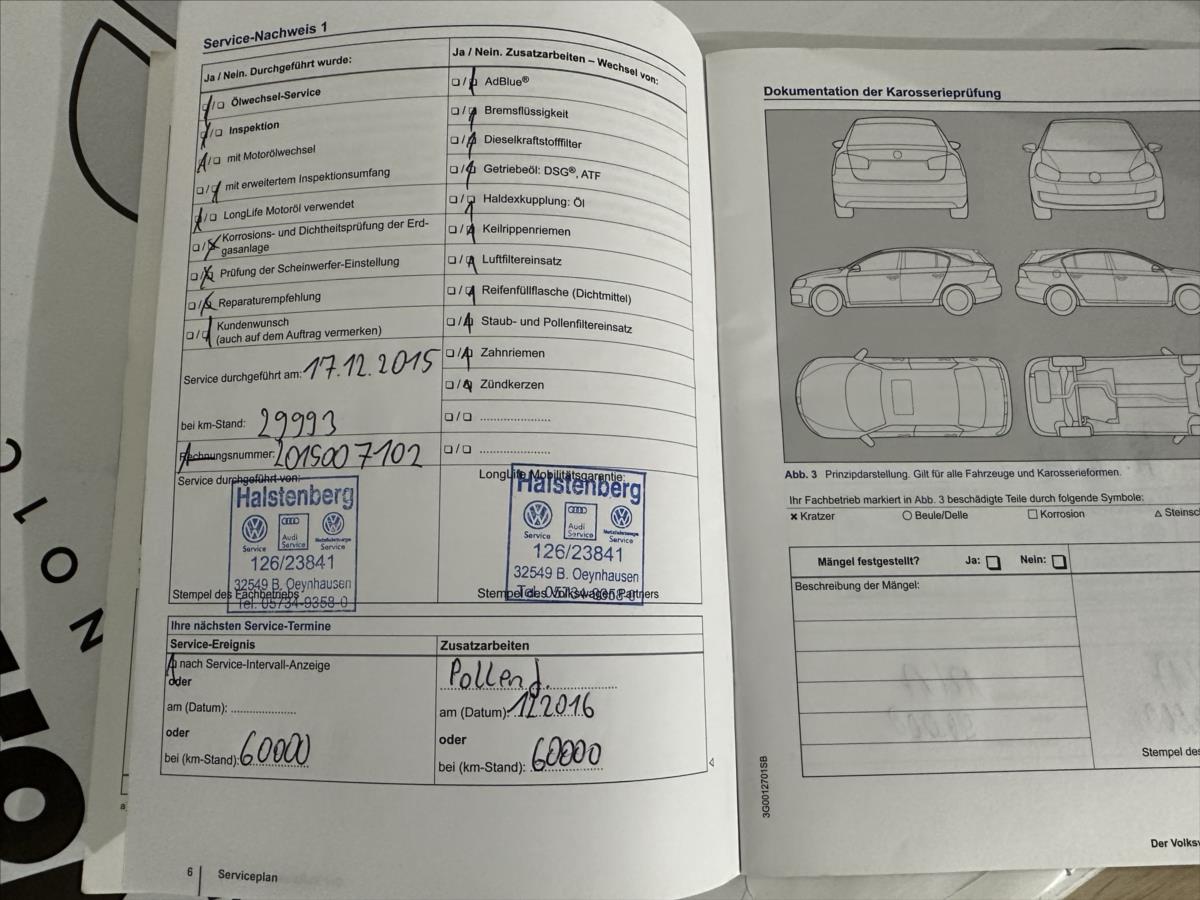 Service-Nachweis 1
Ja / Nein. Durchgeführt wurde:
Ölwechsel-Service
Inspektion
mit Motorölwechsel
mit erweitertem Inspektionsumfang
LongLife Motoröl verwendet
Korrosions- und Dichtheitsprüfung der Erd-
gasanlage
Prüfung der Scheinwerfer-Einstellung
Reparaturempfehlung
Kundenwunsch
(auch auf dem Auftrag vermerken)
Service durchgeführt am: 17.12.2015
bei km-Stand: 29993
Rechnungsnummer: 2015007102
Service durchgeführt von:
Halstenberg
Service
Audi
Service
Nutzfahrzeuge
Service
126/23841
32549 B. Oeynhausen
Tel. 05734-9358-0
Stempel des Fachbetriebs
Ja / Nein. Zusatzarbeiten – Wechsel von:
AdBlue®
Bremsflüssigkeit
Dieselkraftstofffilter
Getriebeöl: DSG®, ATF
Haldexkupplung: Öl
Keilrippenriemen
Luftfiltereinsatz
Reifenfüllflasche (Dichtmittel)
Staub- und Pollenfiltereinsatz
Zahnriemen
Zündkerzen
LongLife Mobilitätsgarantie:
Halstenberg
Service
Audi
Service
Nutzfahrzeuge
Service
126/23841
32549 B. Oeynhausen
Tel. 05734-9358-0
Stempel des Volkswagen Partners
Ihre nächsten Service-Termine
Service-Ereignis
nach Service-Intervall-Anzeige
oder
am (Datum):
oder
bei (km-Stand): 60000
Zusatzarbeiten
Pollenf.
am (Datum): 12.2016
oder
bei (km-Stand): 60000
6 Serviceplan
Dokumentation der Karosserieprüfung
Abb. 3 Prinzipdarstellung. Gilt für alle Fahrzeuge und Karosserieformen.
Ihr Fachbetrieb markiert in Abb. 3 beschädigte Teile durch folgende Symbole:
Kratzer Beule/Delle Korrosion Steinsc
Mängel festgestellt? Ja: Nein:
Beschreibung der Mängel:
Stempel des
3G0012701SB
Der Volksw
C
L
O
N